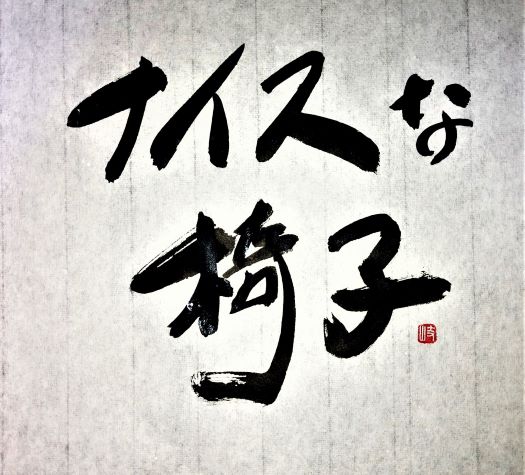 ナイスな
椅子